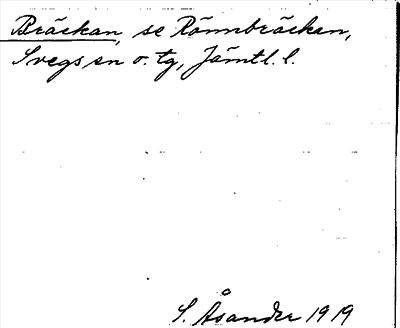 Bräckan, se Rönnbräckan,
Svegs sn o. tg, Jämtl. l.
S. Åsander 1919